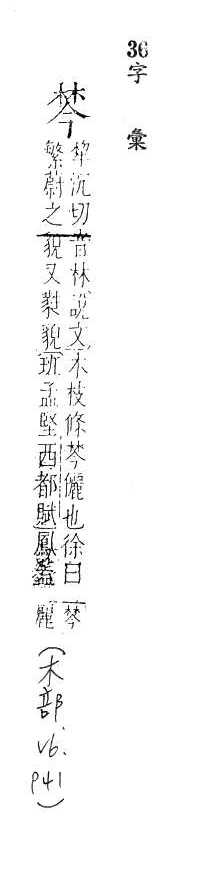 36字 彙
棽
犂沉切音林說文木枝條棽儷也徐曰棽
繁蔚之貌又貌班孟堅西都賦鳳蓋麗
(木部 v6. p41)